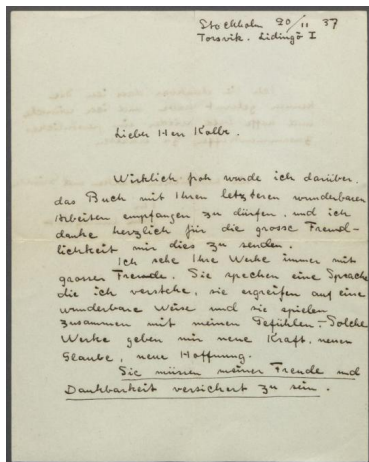 Stockholm 20/11 37
Torsvik. Lidingö I
Lieber Herr Kolbe.
Wirklich froh wurde ich darüber,
das Buch mit Ihren letzteren wunderbaren
Arbeiten empfangen zu dürfen, und ich
danke herzlich für die grosse Freund-
lichkeit mir dies zu senden.
Ich sehe Ihre Werke immer mit
grosser Freude. Sie sprechen eine Sprache
die ich verstehe, sie ergreifen auf eine
wunderbare Weise und sie spielen
zusammen mit meinen Gefühlen. Solche
Werke geben mir neue Kraft, neuen
Glaube, neue Hoffnung.
Sie müssen meiner Freude und
Dankbarkeit versichert zu sein.